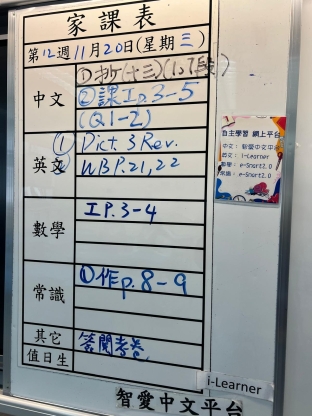 家課表
第12週11月20日(星期三)
中文
①抄(十三)(1,7段)
②課I p.3-5
(Q1-2)
英文
① Dict. 3 Rev.
② WB P.21,22
數學
I P.3-4
常識
①作p.8-9
其它
簽閱考卷
值日生
自主學習 網上平台
中文: 智愛中文平台
英文: i-Learner
數學: e-Smart2.0
常識: e-Smart2.0
i-Learner
智愛中文平台